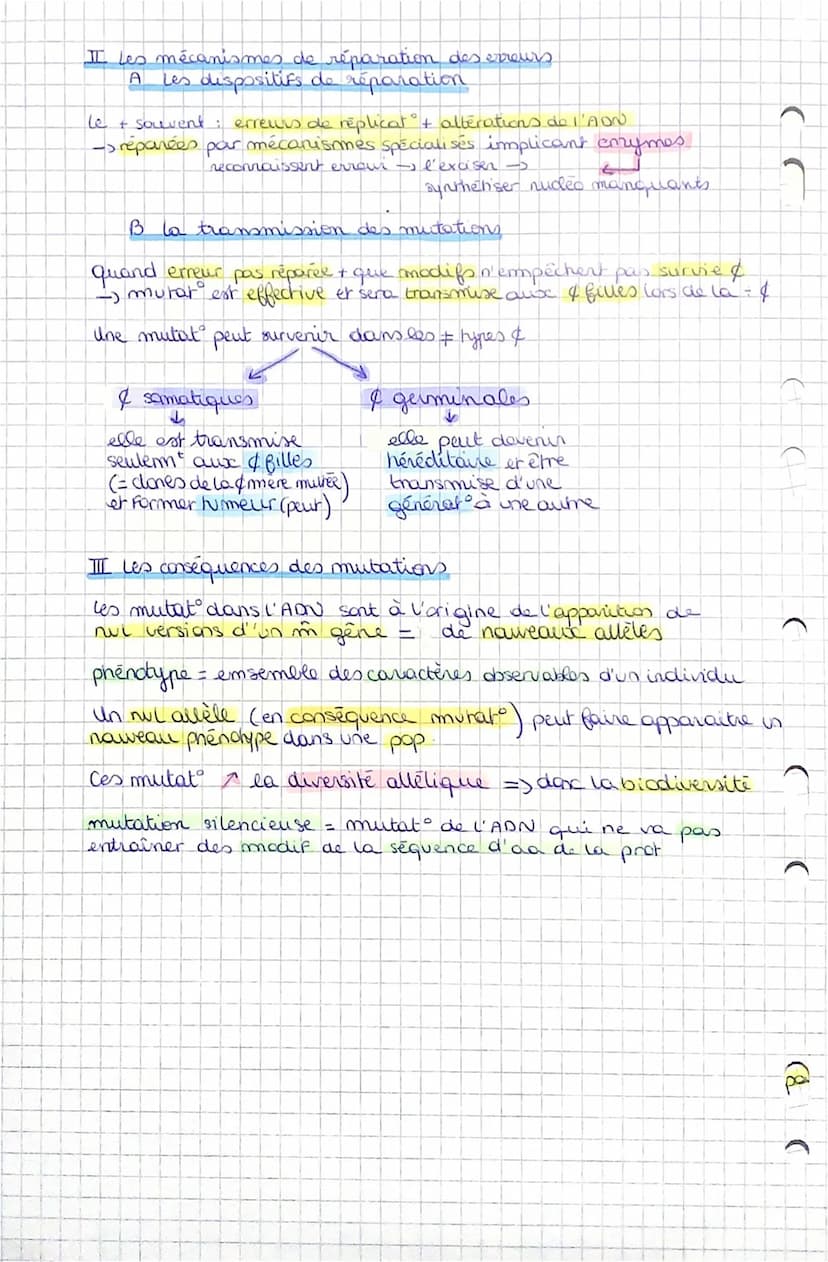 II Les mécanismes de réparation des erreurs
A Les dispositifs de réparation
Le + souvent : erreurs de réplicat° + altérations de l'ADN
→ réparées par mécanismes spécialisés implicant enzymes
reconnaissent erreur → l'exciser →
synthétiser nucléo manquants
B La transmission des mutations
Quand erreur pas réparée + que modifs n'empêchent pas survie ¢
→ mutat° est effective et sera transmise aux ¢ filles lors de la ÷ ¢
Une mutat° peut survenir dans les ≠ types ¢
¢ somatiques
¢ germinales
elle est transmise
seulemt aux ¢ filles
(= clones de la ¢ mère mutée)
et former tumeur (peut)
elle peut devenir
héréditaire et être
transmise d'une
générat° à une autre
III Les conséquences des mutations
Les mutat° dans l'ADN sont à l'origine de l'apparition de
nvl versions d'un m̂ gêne = de nouveaux allèles
phénotype = emsemble des caractères observables d'un individu
Un nvl allèle (en conséquence mutat°) peut faire apparaitre un
nouveau phénotype dans une pop.
Ces mutat° ↗ la diversité allélique => donc la biodiversité
mutation silencieuse = mutat° de l'ADN qui ne va pas
entraîner des modif de la séquence d'aa de la prot